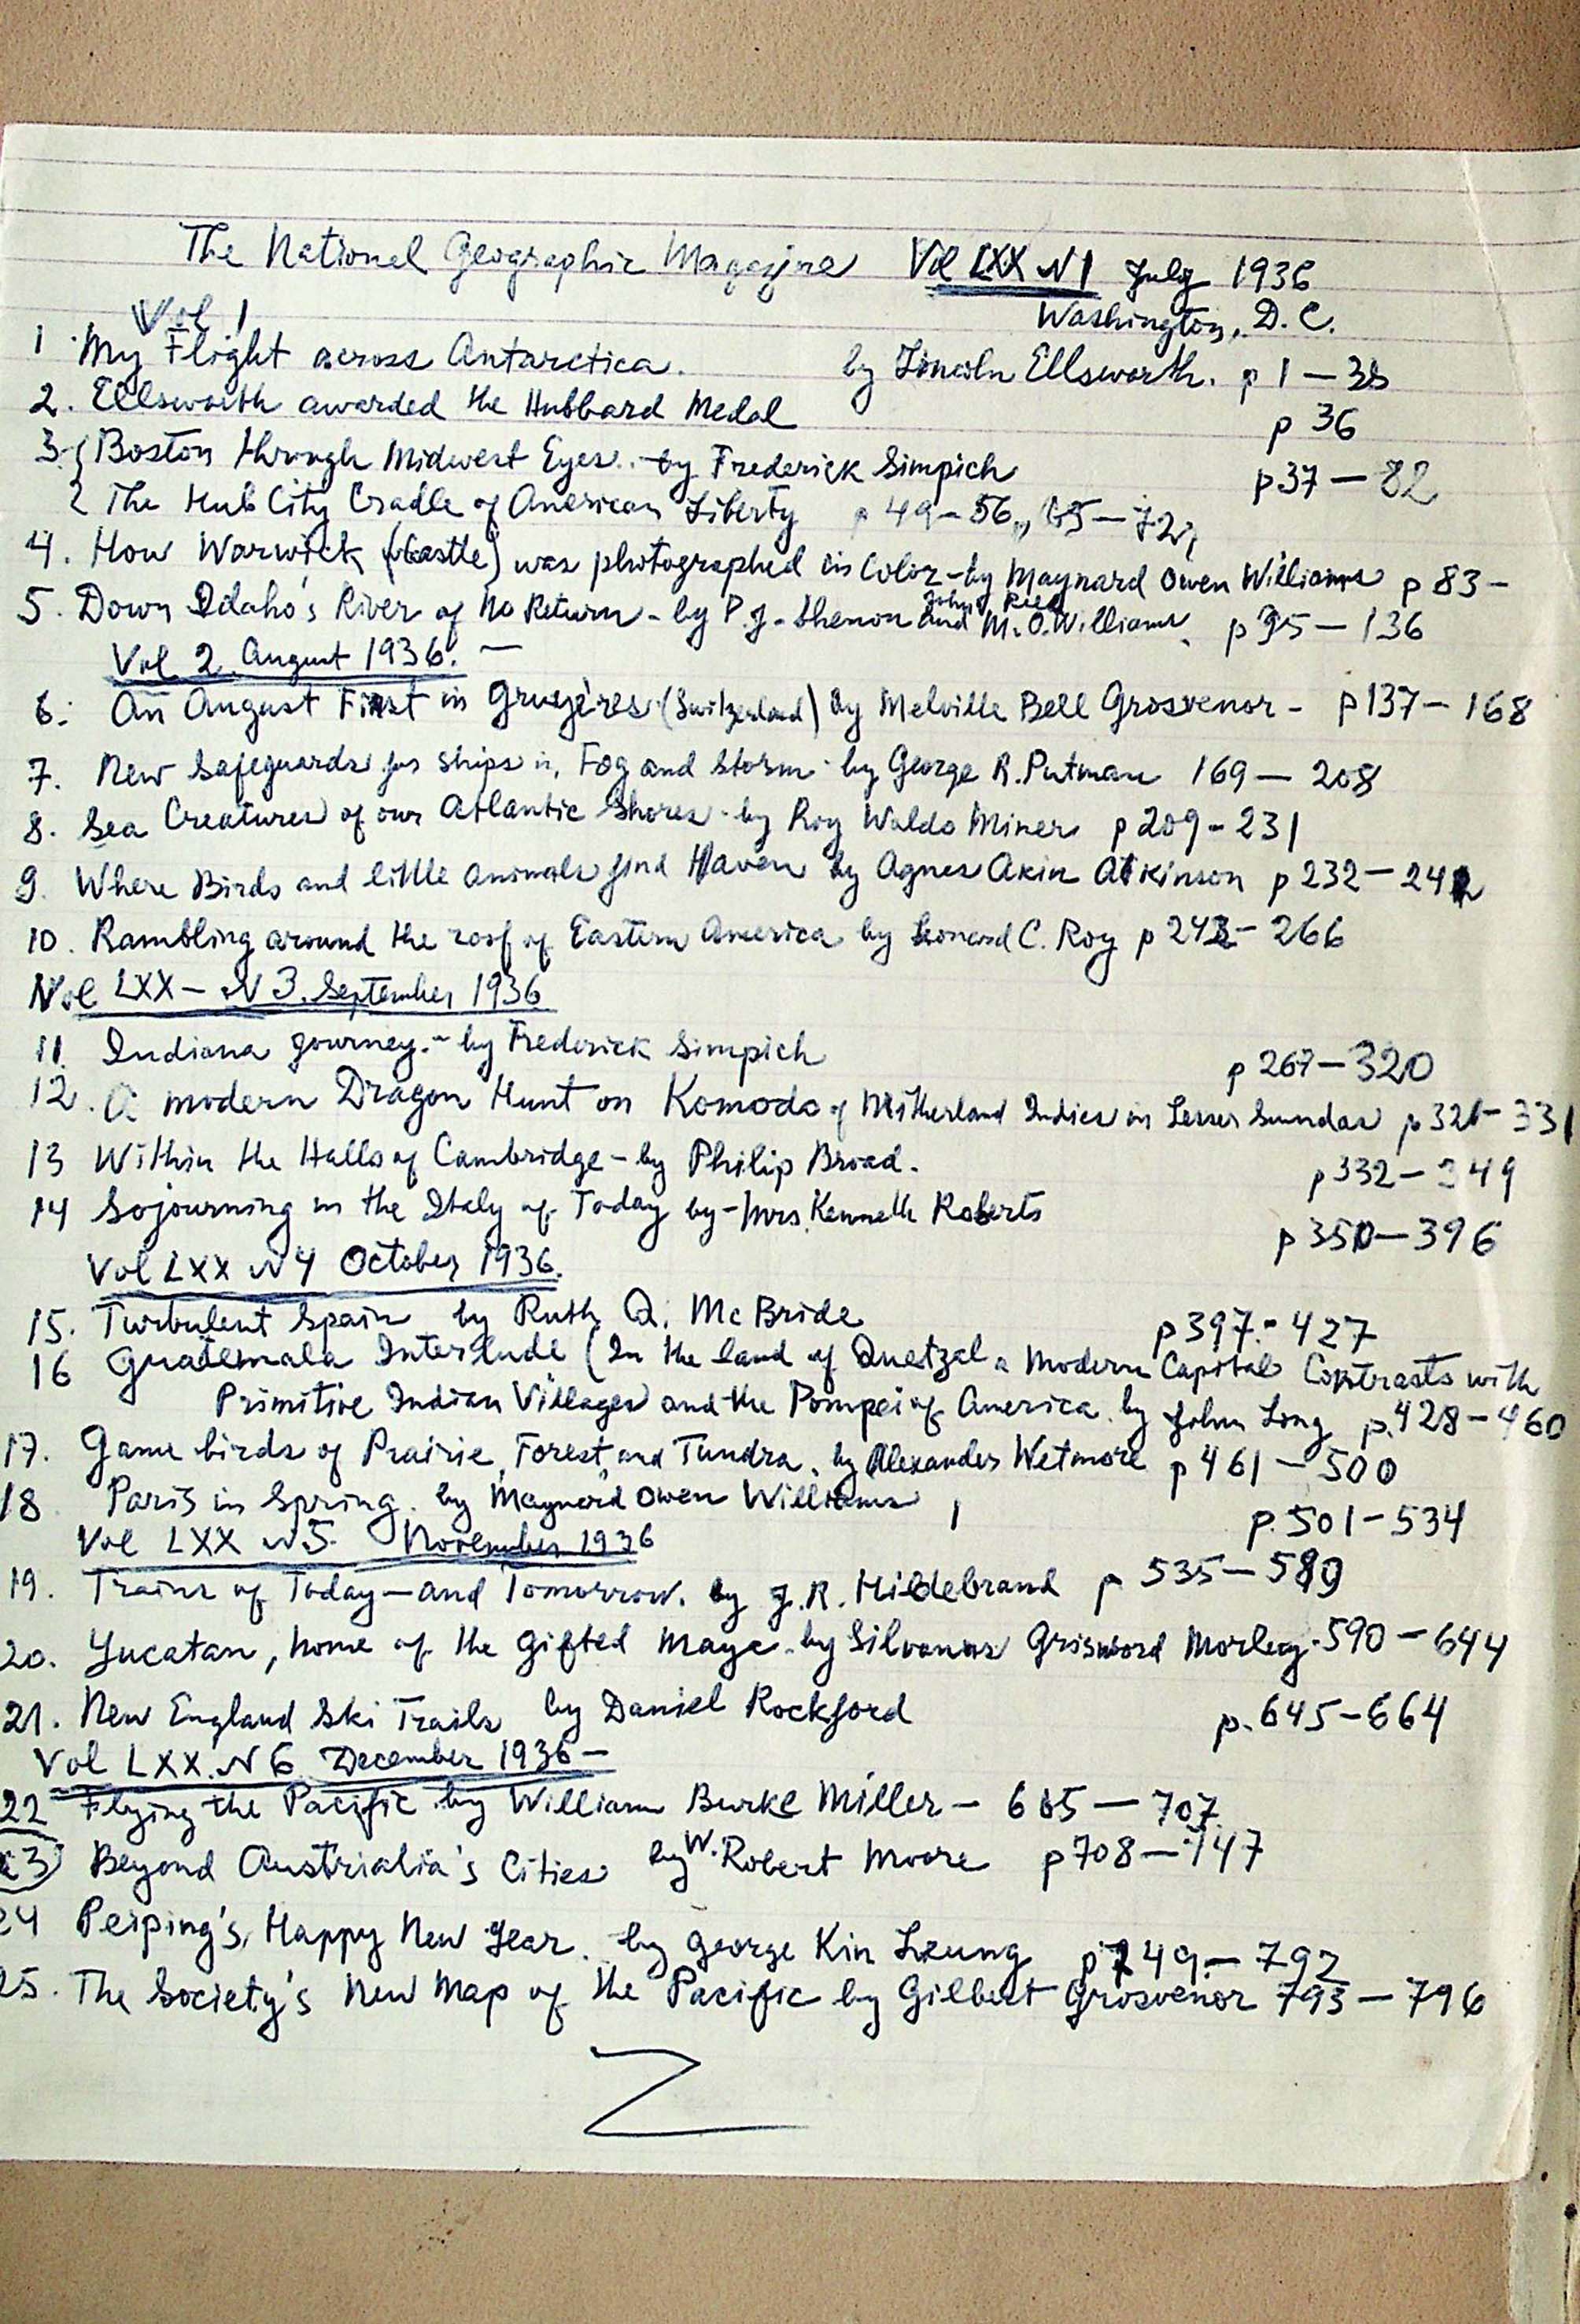 The National Geographic Magazine Vol LXX N1 July 1936
Washington, D.C.
Vol 1
1 My Flight across Antarctica. by Lincoln Ellsworth. p 1-35
2. Ellsworth awarded the Hubbard Medal p 36
3. Boston through Midwest Eyes - by Frederick Simpich p 37-82
The Hub City Cradle of American Liberty p 49-56, 65-72,
4. How Warwick (Castle) was photographed in Color - by Maynard Owen Williams p 83-
5. Down Idaho's River of No Return - by P.J. Shenon and John Reed M.O. Williams. p 95-136
Vol 2. August 1936. -
6. An August First in Gruyères (Switzerland) by Melville Bell Grosvenor - p 137-168
7. New Safeguards for ships in Fog and Storm by George R. Putman 169-208
8. Sea Creatures of our Atlantic Shores by Roy Waldo Miner p 209-231
9. Where Birds and little animals find Haven by Agnes Akin Atkinson p 232-242
10. Rambling around the roof of Eastern America by Leonard C. Roy p 243-266
Vol LXX - N 3. September 1936
11. Indiana journey. - by Frederick Simpich p 267-320
12. A modern Dragon Hunt on Komodo of Nitherland Indies in Lesser Sundas p 321-331
13 Within the Halls of Cambridge - by Philip Broad. p 332-349
14 Sojourning in the Italy of Today by - Mrs. Kenneth Roberts p 350-396
Vol LXX N4 October 1936.
15. Turbulent Spain by Ruth Q. McBride p 397-427
16 Guatemala Interlude (In the land of Quetzal a Modern Capital Contrasts with
Primitive Indian Villages and the Pompei of America. by John Long p. 428-460
17. Game birds of Prairie, Forest, and Tundra. by Alexander Wetmore p 461-500
18 Paris in Spring. by Maynard Owen Williams p. 501-534
Vol LXX N5. November 1936
19. Trains of Today - and Tomorrow. by J.R. Hildebrand p 535-589
20. Yucatan, home of the Gifted Maya. by Silvanus Grisword Morley. 590-644
21. New England Ski Trails by Daniel Rockford p. 645-664
Vol LXX. N6 December 1936 -
22 Flying the Pacific by William Burke Miller - 665-707
23 Beyond Austrialia's Cities by W. Robert Moore p 708-747
24 Peiping's Happy New Year. by George Kin Leung p 749-792
25. The Society's New Map of the Pacific by Gilbert Grosvenor 793-796
Z